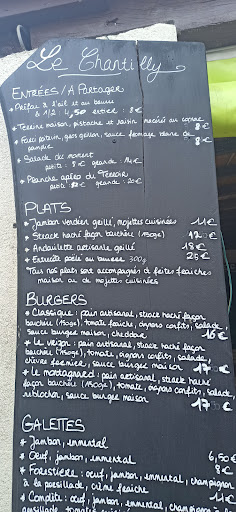 Le Chantilly
ENTRÉES / A Partager
* Préfou à l'ail et au beurre
& 1/2 : 4,50 entier : 8€
* Terrine maison, pistache et raisin macéré au cognac
8€
* Faux potum, gros grillon, sauce fromage
8€
* Salade du moment
petite : 8€ grande : 14€
* Planche apéro du Terroir
petite : grande : 20€
PLATS
* Jambon vendéen grillé, mojettes cuisinées 11€
* Steack haché façon bouchère (150g) 12
* Andouillette artisanale grillé 18€
* Entrecôte poêlé au beurre 300g 26€
Tous nos plats sont accompagnés de frites fraîches
maison ou de mojettes cuisinées
BURGERS
* Classique : pain artisanal, steack haché façon
bouchère (150g), tomate fraîche, oignons confits, salade,
sauce burger maison, cheddar 16€
* Le : pain artisanal, steack haché façon
bouchère (150g), tomate, oignons confits, salade,
chèvre fermier, sauce burger maison 17€
* Le montagnard : pain artisanal, steack haché
façon bouchère (150g), tomate, oignons confits, salade,
reblochon, sauce burger maison 17€
GALETTES
* Jambon, emmental
* Oeuf, jambon, emmental 6,50€
* FORESTIÈRE : oeuf, jambon, emmental, champignon 8€
à la persillade, crème fraîche 11€
* Complète : oeuf, jambon, emmental, champignon à la
persillade, tomates